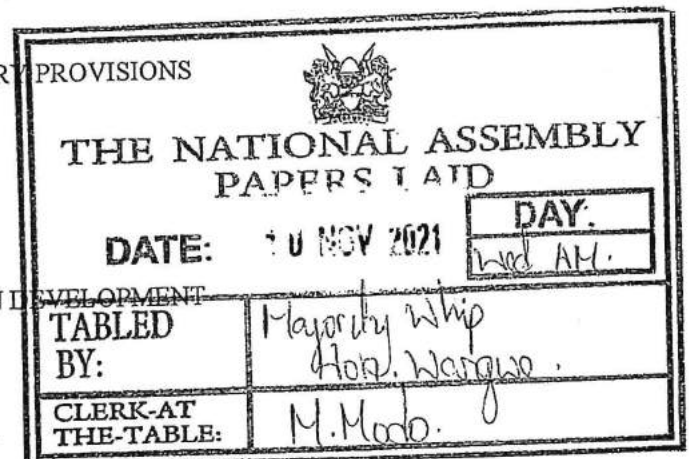 RY PROVISIONS
THE NATIONAL ASSEMBLY
PAPERS LAID
DATE: 10 NOV 2021
DAY:
Wed AM.
N DEVELOPMENT
TABLED BY:
Majority Whip
Hon. Wangwe.
CLERK-AT THE-TABLE:
M.Modo.